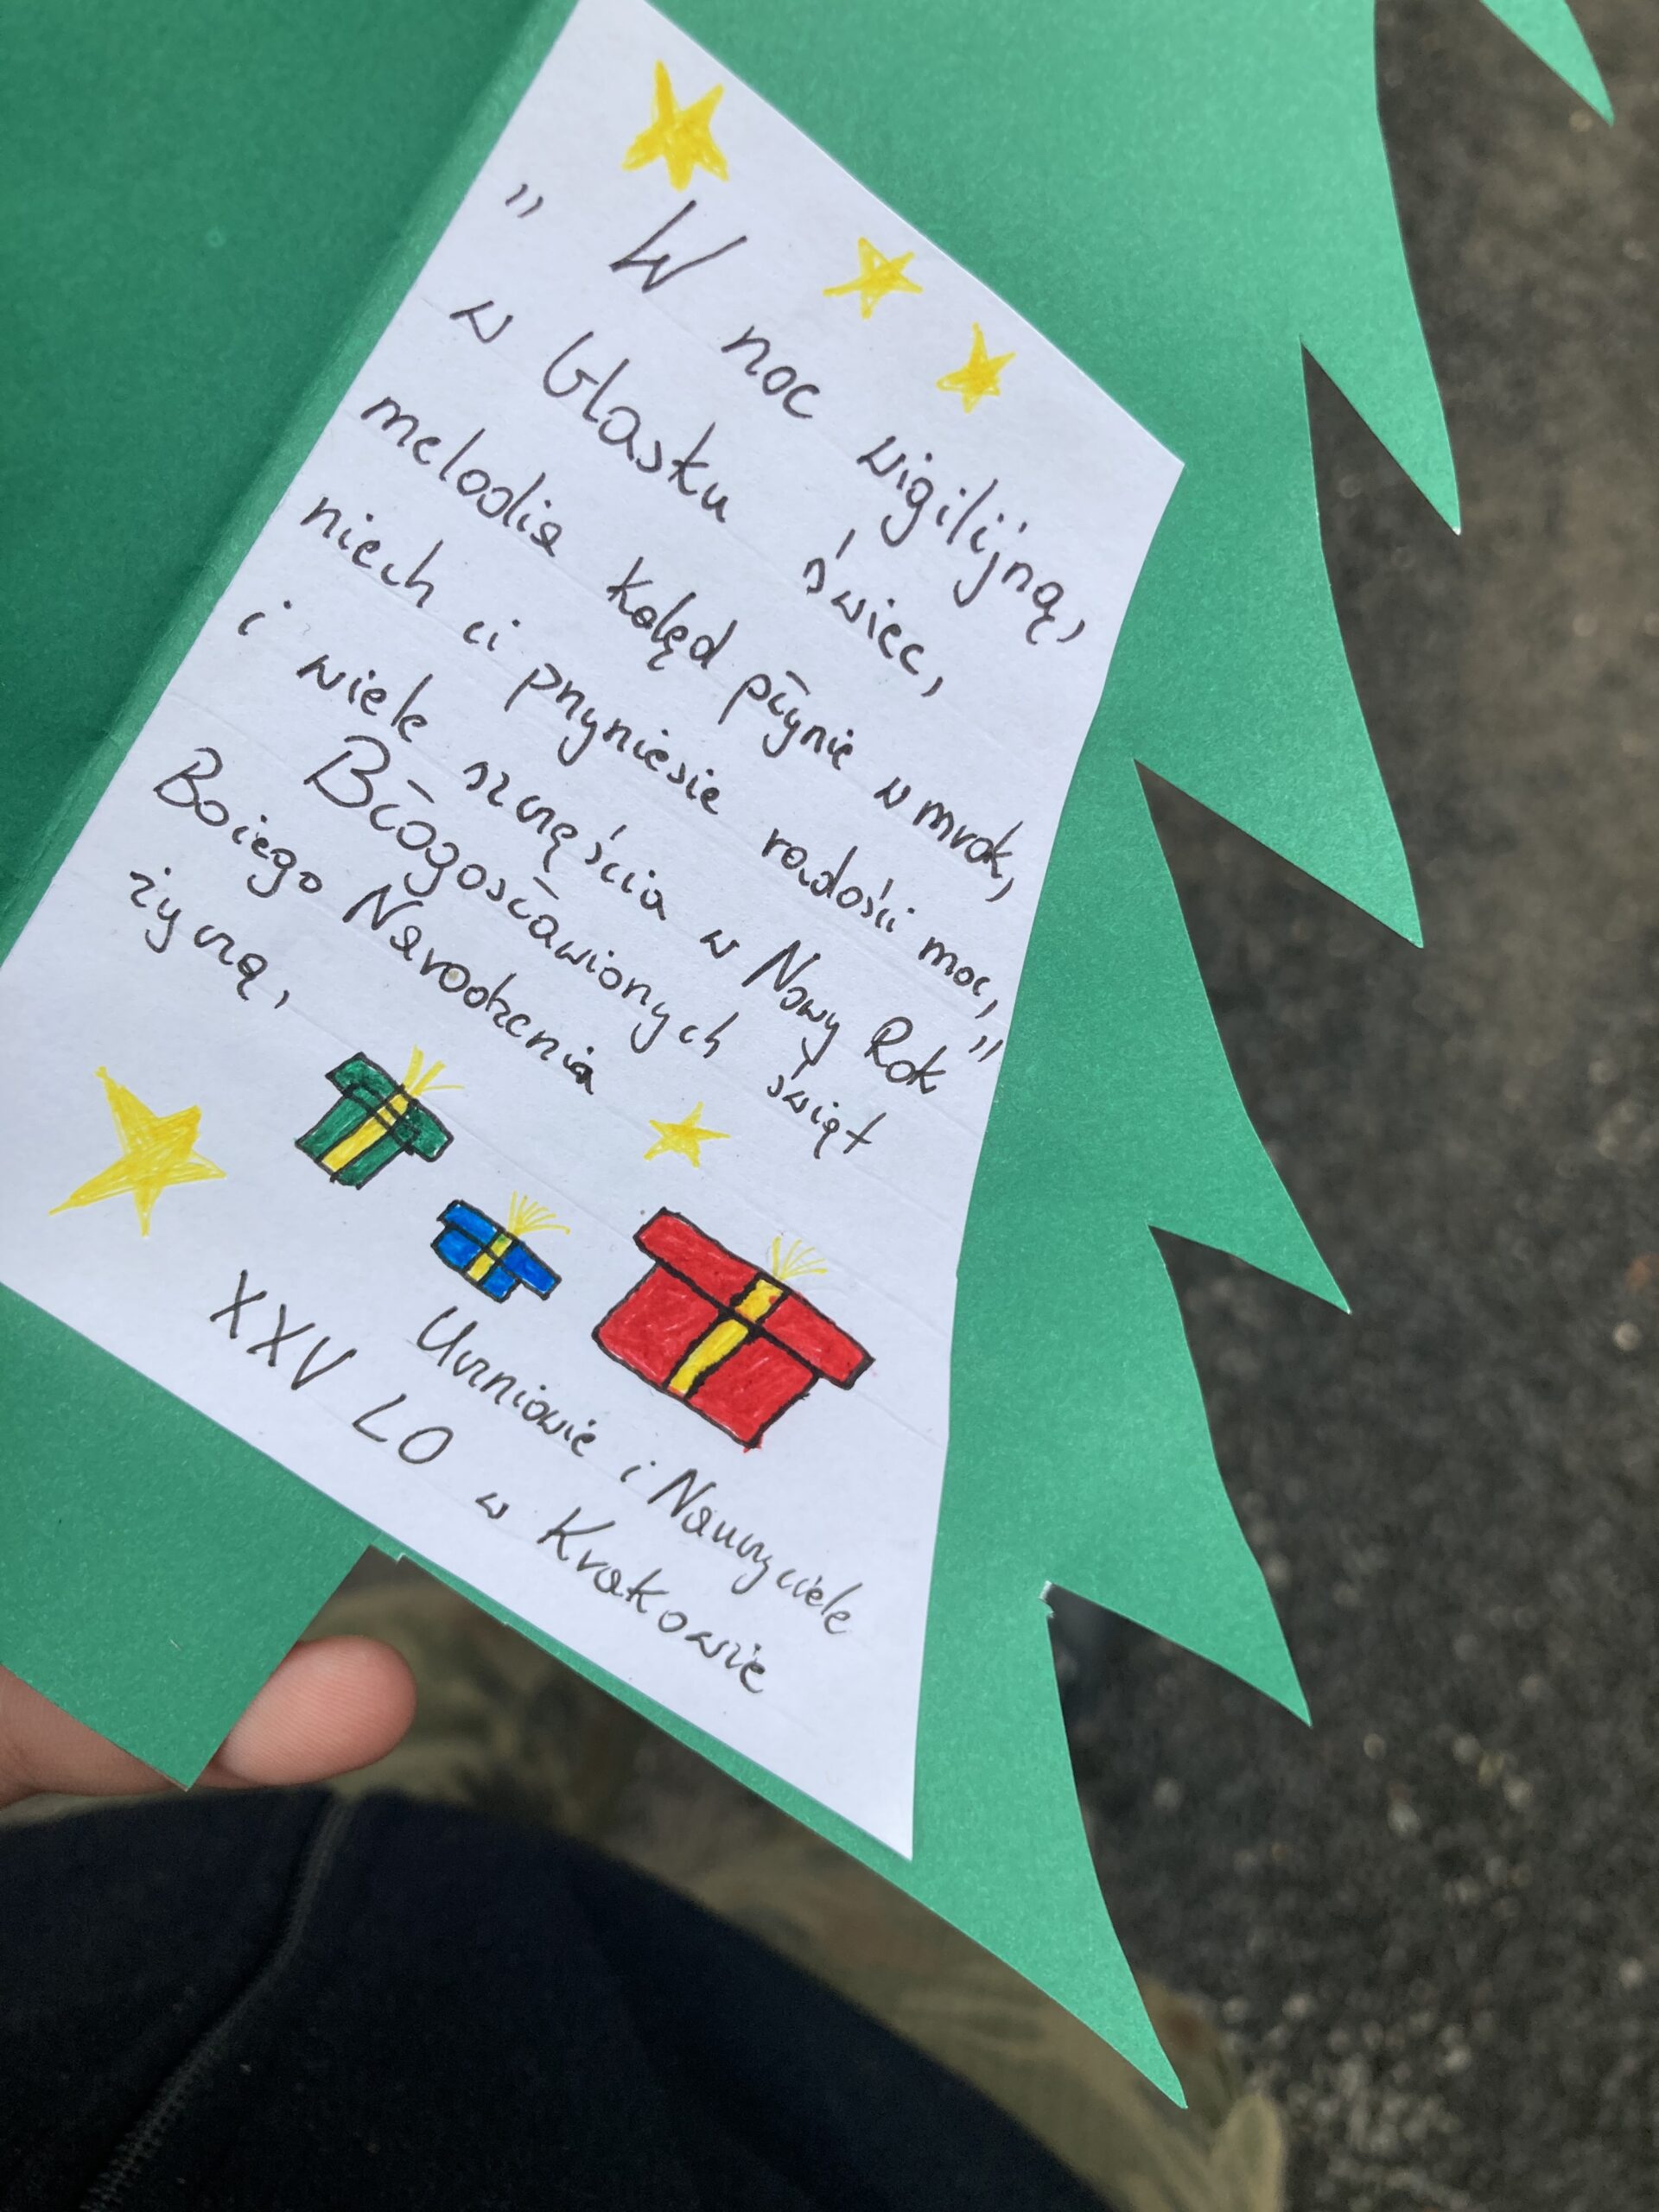 " W noc wigilijną,
w blasku świec,
melodia kolęd płynie w mrok,
niech ci przyniesie radości moc,
i wiele szczęścia w Nowy Rok"
Błogosławionych świąt
Bożego Narodzenia
życzą,
Uczniowie i Nauczyciele
XXV LO w Krakowie